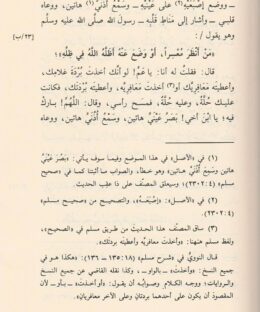 ووضع إصْبَعَيْهِ (٢) على عَيْنَيْهِ ــ وسَمْعُ أُذُنَيَّ (١) هاتين، ووعاه
قلبي ــ وأشار إلى مَنَاطِ قَلْبِهِ ــ رسولَ الله صلَّى الله عليه وسلَّم
وهو يقول /: [٢٣/ب]
«مَنْ أَنْظَرَ مُعْسِراً، أَوْ وَضَعَ عَنْهُ أَظَلَّهُ اللَّهُ فِي ظِلِّهِ»!
قال: فقلتُ له أنا: يا عَمِّ! لو أنَّكَ أخذتَ بُرْدَةَ غلامِك،
وأعطيتَه مَعَافِرِيَّكَ، أو أخذتَ مَعَافِرِيَّه، وأعطيتَه بُرْدَتَكَ، فكانت
عليك حُلَّةٌ، وعليه حُلَّةٌ، فمسح رأسي، وقال: اللَّهُمَّ! بارِكْ
فيه؛ يا ابنَ أخي! بَصَرُ عَيْنَيَّ هاتين، وسَمْعُ أُذُنَيَّ هاتين، ووعاه
(١) في «الأصل» في هذا الموضع وفيما سوف يأتي: «بَصَرَ عَيْنَيَّ
هاتين وسَمْعَ أُذُنَيَّ هاتين» وهو خطأ، والصواب ما أثبتنا كما في «صحيح
مسلم» (٤: ٢٣٠٢)؛ وسيعلق المصنّف على ذا عقب الحديث.
(٢) في «الأصل»: «إصْبَعَهُ»، والتصحيح من «صحيح مسلم»
(٤: ٢٣٠٢).
(٣) ساق المصنّف هذا الحديث من طريق مسلم في «الصحيح»،
ولفظ مسلم ههنا: «وأخذتَ معافريَّه وأعطيتَه بردتَك».
قال النووي في «شرح مسلم» (١٨: ١٣٥ – ١٣٦): «هكذا هو في
جميع النسخ: «وأخذت» ــ بالواو ــ، وكذا نقله القاضي عن جميع النسخ
والروايات؛ ووجه الكلام وصوابه أن يقول: «أو أخذت» ــ بأو ــ لأن
المقصود أن يكون على أحدهما بردتان وعلى الآخر معافريان».